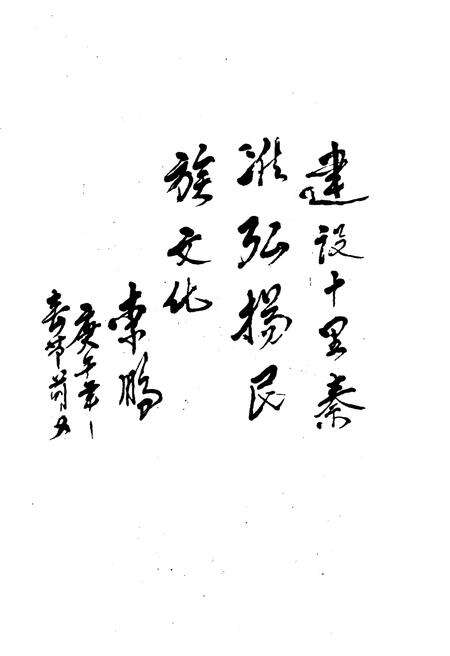 建设十里秦
淮弘扬民
族文化
索鹏
庚午年
春节前夕